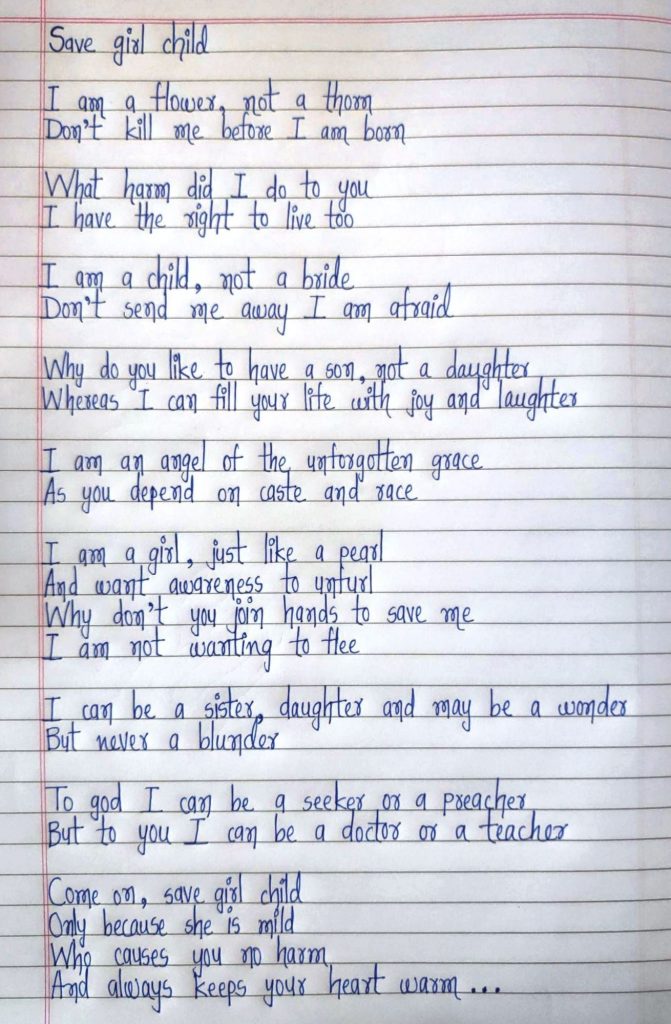 Save girl child
I am a flower, not a thorn
Don't kill me before I am born
What harm did I do to you
I have the right to live too
I am a child, not a bride
Don't send me away I am afraid
Why do you like to have a son, not a daughter
Whereas I can fill your life with joy and laughter
I am an angel of the unforgotten grace
As you depend on caste and race
I am a girl, just like a pearl
And want awareness to unfurl
Why don't you join hands to save me
I am not wanting to flee
I can be a sister, daughter and may be a wonder
But never a blunder
To god I can be a seeker or a preacher
But to you I can be a doctor or a teacher
Come on, save girl child
Only because she is mild
Who causes you no harm
And always keeps your heart warm...